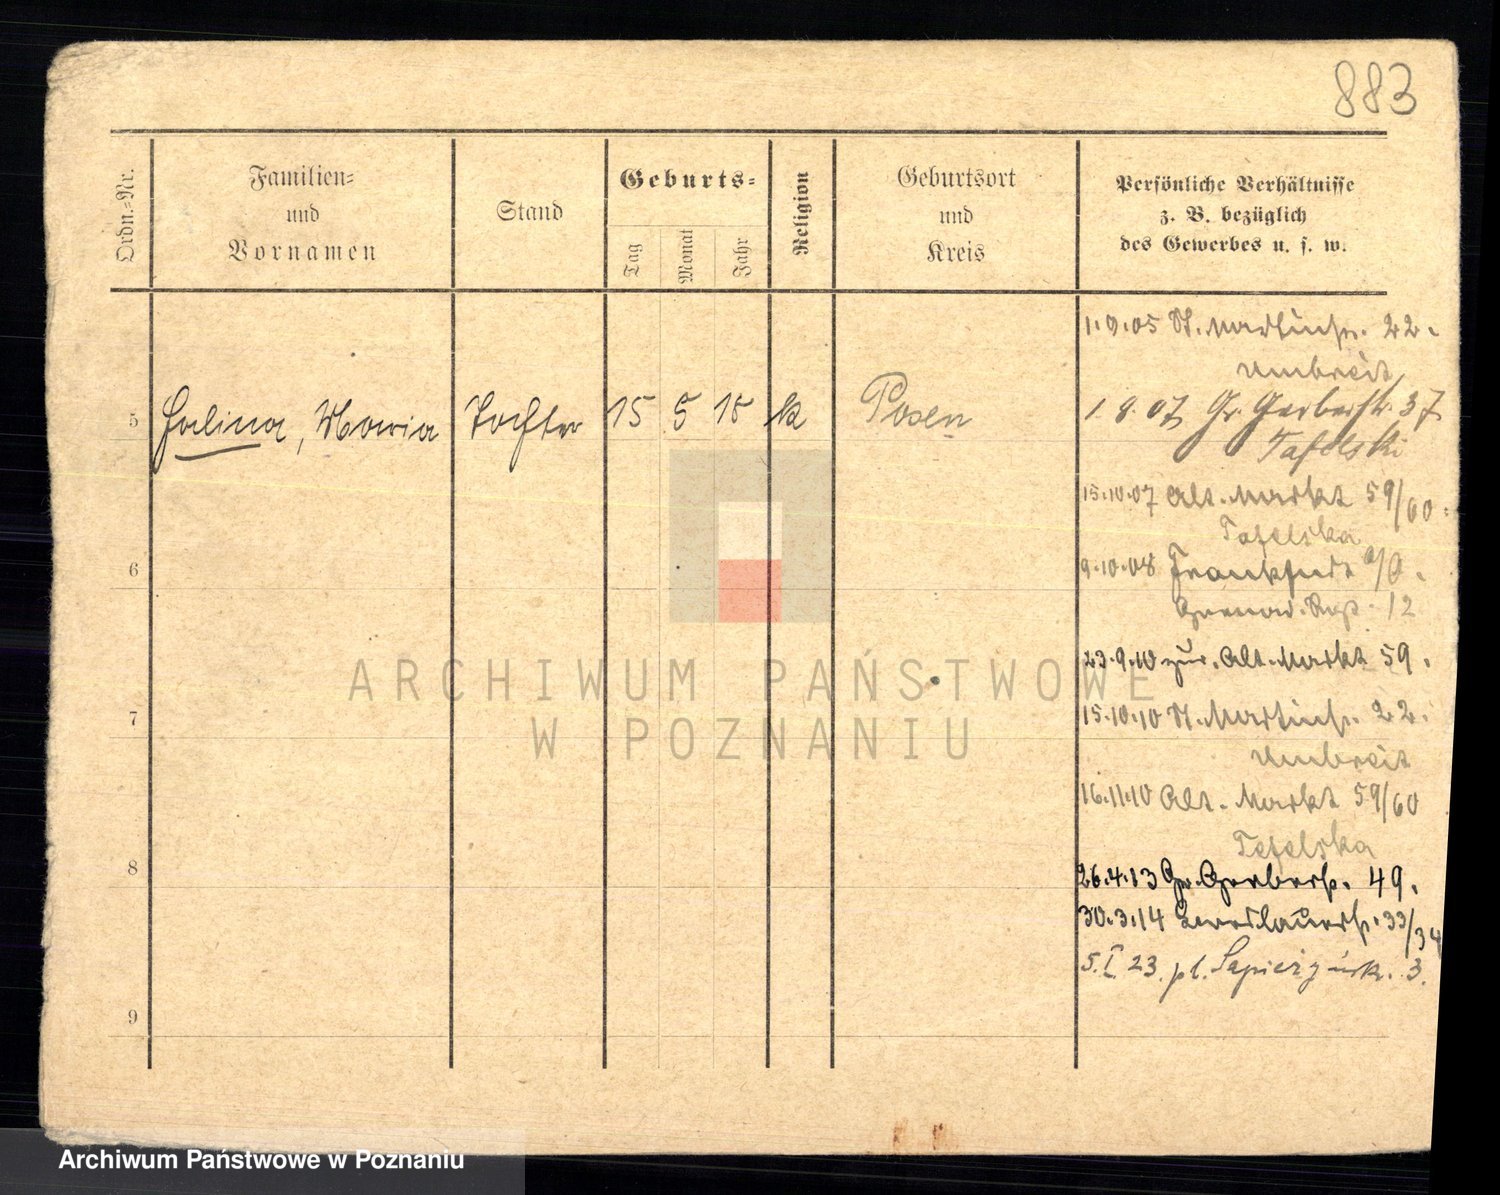 883
Ordn.-Nr.
Familien-
und
Vornamen
Stand
Geburts-
Tag
Monat
Jahr
Religion
Geburtsort
und
Kreis
Persönliche Verhältnisse
z. B. bezüglich
des Gewerbes u. s. w.
1.9.05 St. Martinstr. 22.
Umbreit
5 Halina, Maria Tochter 15 5 18 k Posen
1.8.07 Gr. Gerberstr. 37
Tafelski
15.10.07 Alt. Markt 59/60.
Tafelska
6
9.10.08 Frankfurt a/O.
Grenad. Rgt. 12
23.9.10 zur. Alt. Markt 59.
7
15.10.10 St. Martinstr. 22.
Umbreit
16.11.10 Alt. Markt 59/60
Tefelska
8
26.4.13 Gr. Gerberstr. 49.
30.3.14 Breslauerstr. 33/34
5.I.23. pl. Sapieżyńsk. 3.
9
ARCHIWUM PAŃSTWOWE
W POZNANIU
Archiwum Państwowe w Poznaniu